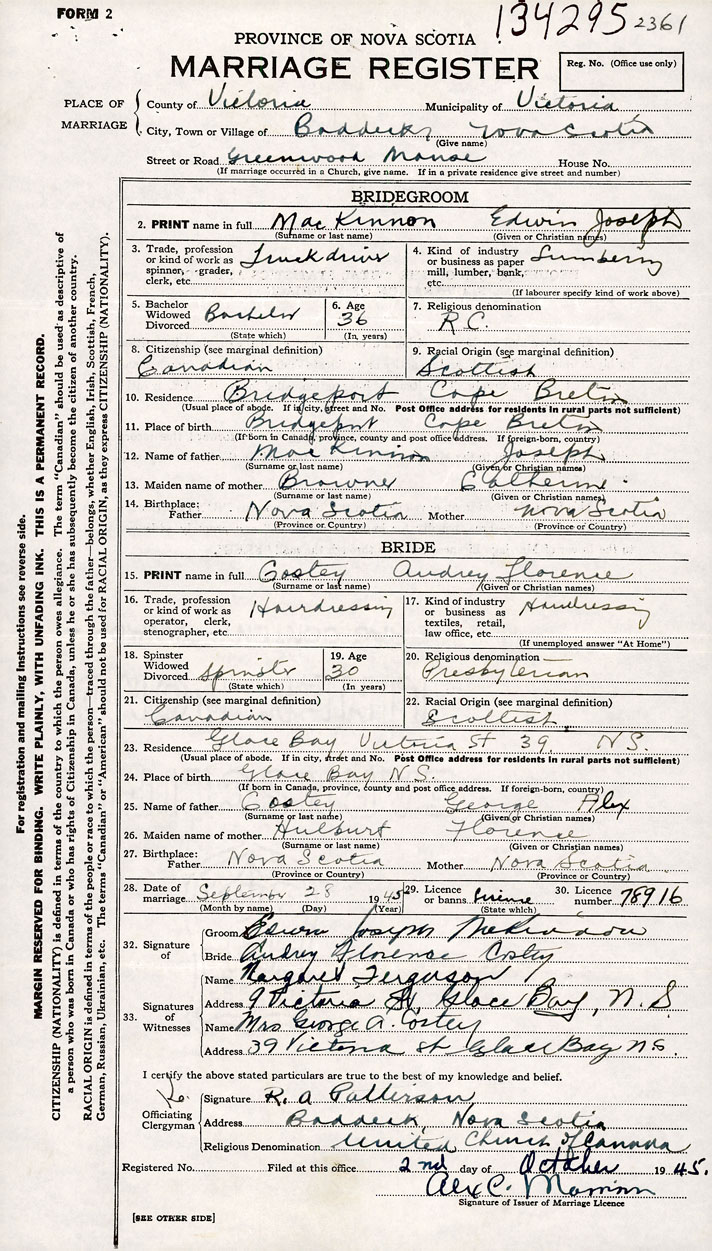 FORM 2
134295 2361
PROVINCE OF NOVA SCOTIA
MARRIAGE REGISTER
Reg. No. (Office use only)
PLACE OF MARRIAGE
County of Victoria Municipality of Victoria
City, Town or Village of Baddeck, Nova Scotia
(Give name)
Street or Road Greenwood Manse House No.
(If marriage occurred in a Church, give name. If in a private residence give street and number)
BRIDEGROOM
2. PRINT name in full MacKinnon Edwin Joseph
(Surname or last name) (Given or Christian names)
3. Trade, profession or kind of work as spinner, grader, clerk, etc. Truck driver
4. Kind of industry or business as paper mill, lumber, bank, etc. Lumbering
(If labourer specify kind of work above)
5. Bachelor Widowed Divorced Bachelor
(State which)
6. Age 36
(In years)
7. Religious denomination R.C.
8. Citizenship (see marginal definition) Canadian
9. Racial Origin (see marginal definition) Scottish
10. Residence Bridgeport Cape Breton
(Usual place of abode. If in city, street and No. Post Office address for residents in rural parts not sufficient)
11. Place of birth Bridgeport Cape Breton
(If born in Canada, province, county and post office address. If foreign-born, country)
12. Name of father MacKinnon Joseph
(Surname or last name) (Given or Christian names)
13. Maiden name of mother Browner Catherine
(Surname or last name) (Given or Christian names)
14. Birthplace: Father Nova Scotia Mother Nova Scotia
(Province or Country) (Province or Country)
BRIDE
15. PRINT name in full Costey Audrey Florence
(Surname or last name) (Given or Christian names)
16. Trade, profession or kind of work as operator, clerk, stenographer, etc. Hairdressing
17. Kind of industry or business as textiles, retail, law office, etc. Hairdressing
(If unemployed answer "At Home")
18. Spinster Widowed Divorced Spinster
(State which)
19. Age 30
(In years)
20. Religious denomination Presbyterian
21. Citizenship (see marginal definition) Canadian
22. Racial Origin (see marginal definition) Scottish
23. Residence Glace Bay Victoria St 39. N.S.
(Usual place of abode. If in city, street and No. Post Office address for residents in rural parts not sufficient)
24. Place of birth Glace Bay N.S.
(If born in Canada, province, county and post office address. If foreign-born, country)
25. Name of father Costey George Alex
(Surname or last name) (Given or Christian names)
26. Maiden name of mother Hulburt Florence
(Surname or last name) (Given or Christian names)
27. Birthplace: Father Nova Scotia Mother Nova Scotia
(Province or Country) (Province or Country)
28. Date of marriage September 28 1945
(Month by name) (Day) (Year)
29. Licence or banns license
(State which)
30. Licence number 78916
32. Signature of
Groom Edwin Joseph McKinnon
Bride Audrey Florence Costey
33. Signatures of Witnesses
Name Margaret Ferguson
Address 9 Victoria St, Glace Bay, N.S
Name Mrs George A. Costey
Address 39 Victoria St Glace Bay N.S.
I certify the above stated particulars are true to the best of my knowledge and belief.
Officiating Clergyman
Signature R. A Patterson
Address Baddeck, Nova Scotia
Religious Denomination United Church of Canada
Registered No. Filed at this office 2nd day of October 1945.
Alex C.
Signature of Issuer of Marriage Licence
[SEE OTHER SIDE]
For registration and mailing instructions see reverse side.
MARGIN RESERVED FOR BINDING. WRITE PLAINLY, WITH UNFADING INK. THIS IS A PERMANENT RECORD.
CITIZENSHIP (NATIONALITY) is defined in terms of the country to which the person owes allegiance. The term "Canadian" should be used as descriptive of
a person who was born in Canada or who has rights of Citizenship in Canada, unless he or she has subsequently become the citizen of another country.
RACIAL ORIGIN is defined in terms of the people or race to which the person—traced through the father—belongs, whether English, Irish, Scottish, French,
German, Russian, Ukrainian, etc. The terms "Canadian" or "American" should not be used for RACIAL ORIGIN, as they express CITIZENSHIP (NATIONALITY).